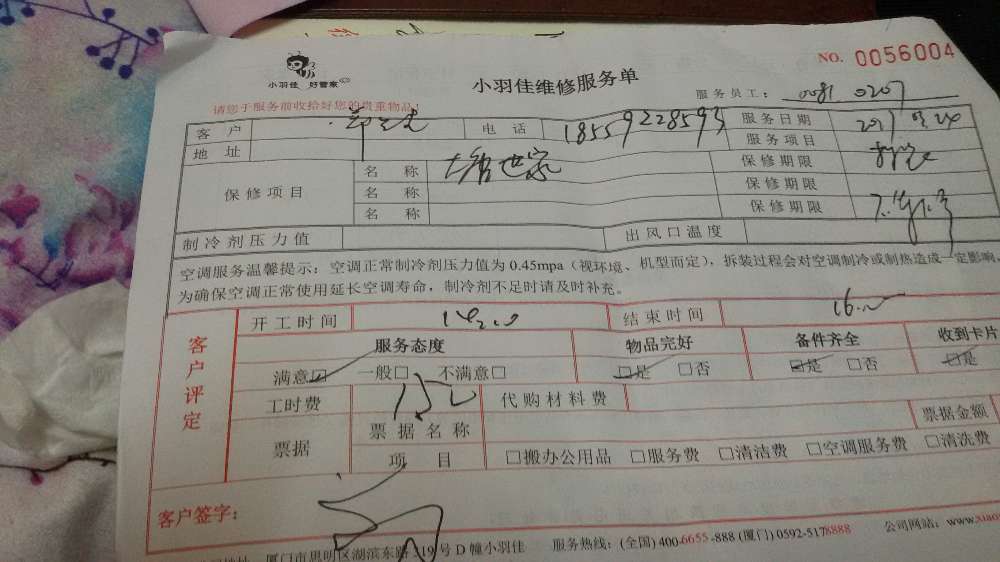 小羽佳 好管家
小羽佳维修服务单
NO. 0056004
请您于服务前收拾好您的贵重物品!
服务员工: 0081 0207
客户 电话 18559228593 服务日期
地址 服务项目
保修项目 名称 保修期限
名称 保修期限
名称 保修期限
制冷剂压力值 出风口温度
空调服务温馨提示:空调正常制冷剂压力值为0.45mpa(视环境、机型而定),拆装过程会对空调制冷或制热造成一定影响,
为确保空调正常使用延长空调寿命,制冷剂不足时请及时补充。
客户评定
开工时间 结束时间
服务态度 物品完好 备件齐全 收到卡片
满意□ 一般□ 不满意□ □是 □否 □是 □否 □是
工时费 150 代购材料费
票据 票据名称 票据金额
项目 □搬办公用品 □服务费 □清洁费 □空调服务费 □清洗费
客户签字:
厦门市思明区湖滨东路319号D幢小羽佳 服务热线:(全国)400-6655-888 (厦门) 0592-5178888 公司网站:www.xiao